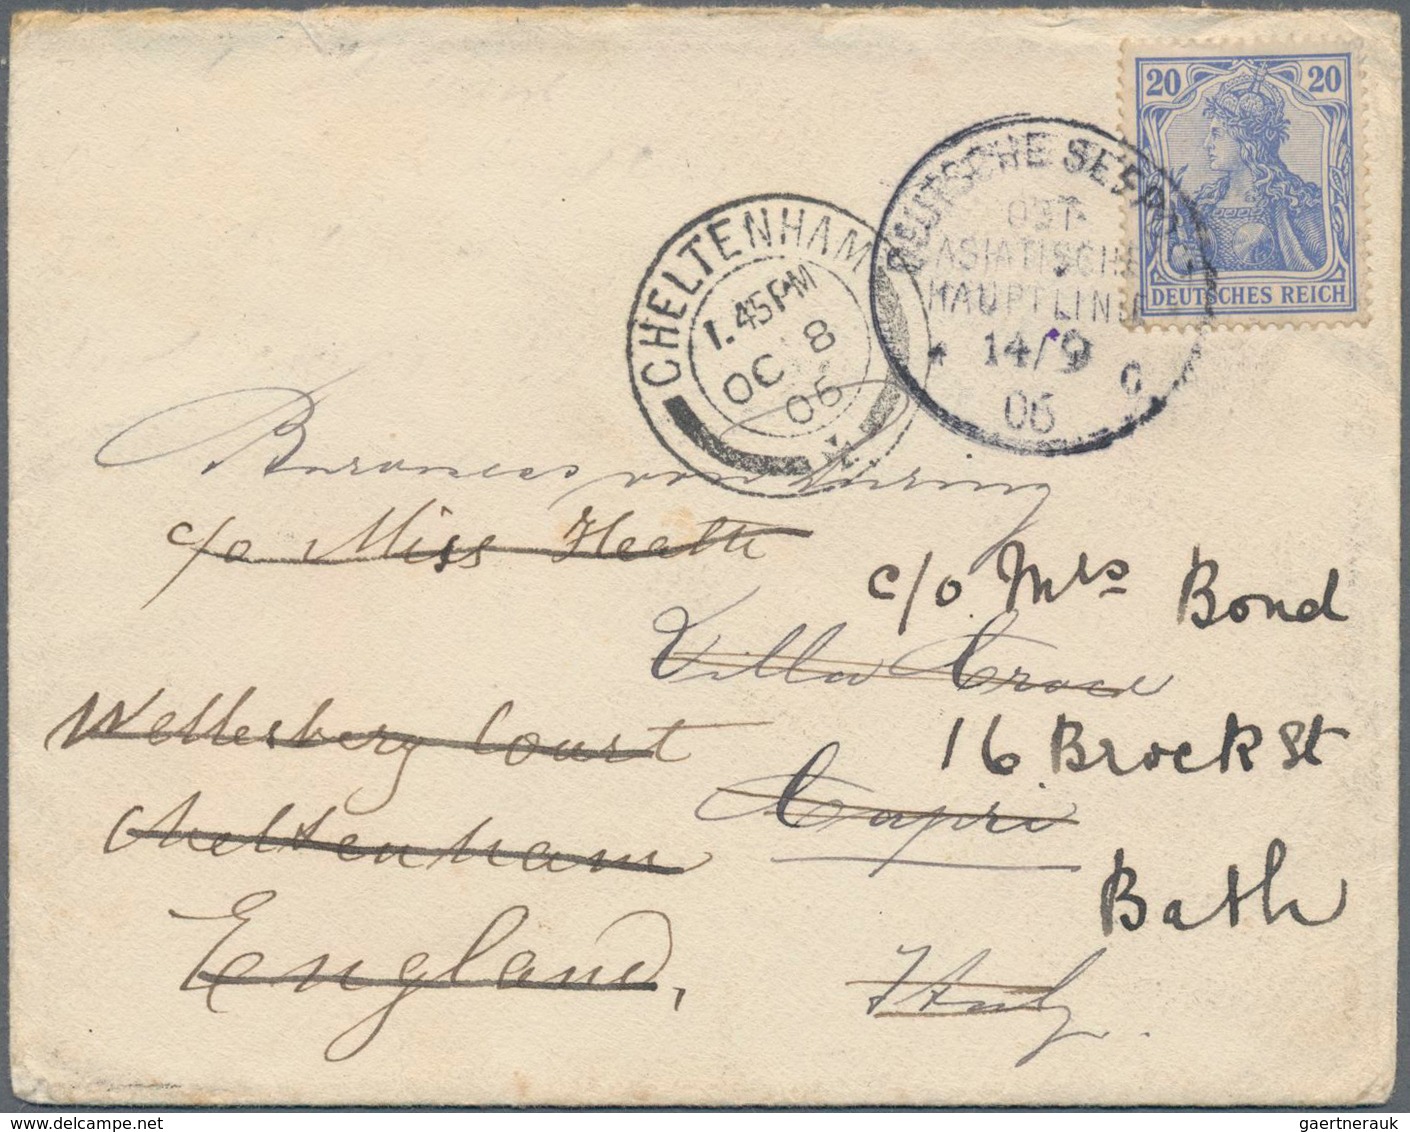 20 20
DEUTSCHES REICH
DEUTSCHE SEEPOST
OST-
ASIATISCHE
HAUPTLINIE
14/9
06
CHELTENHAM
1.45 PM
OC 8
06
Baroness von
c/o Miss Heath
c/o Mrs Bond
Villa Croce
Wellesberg Court
16 Brock St
Capri
Cheltenham
Bath
England,
Italy.
gaertnerauk